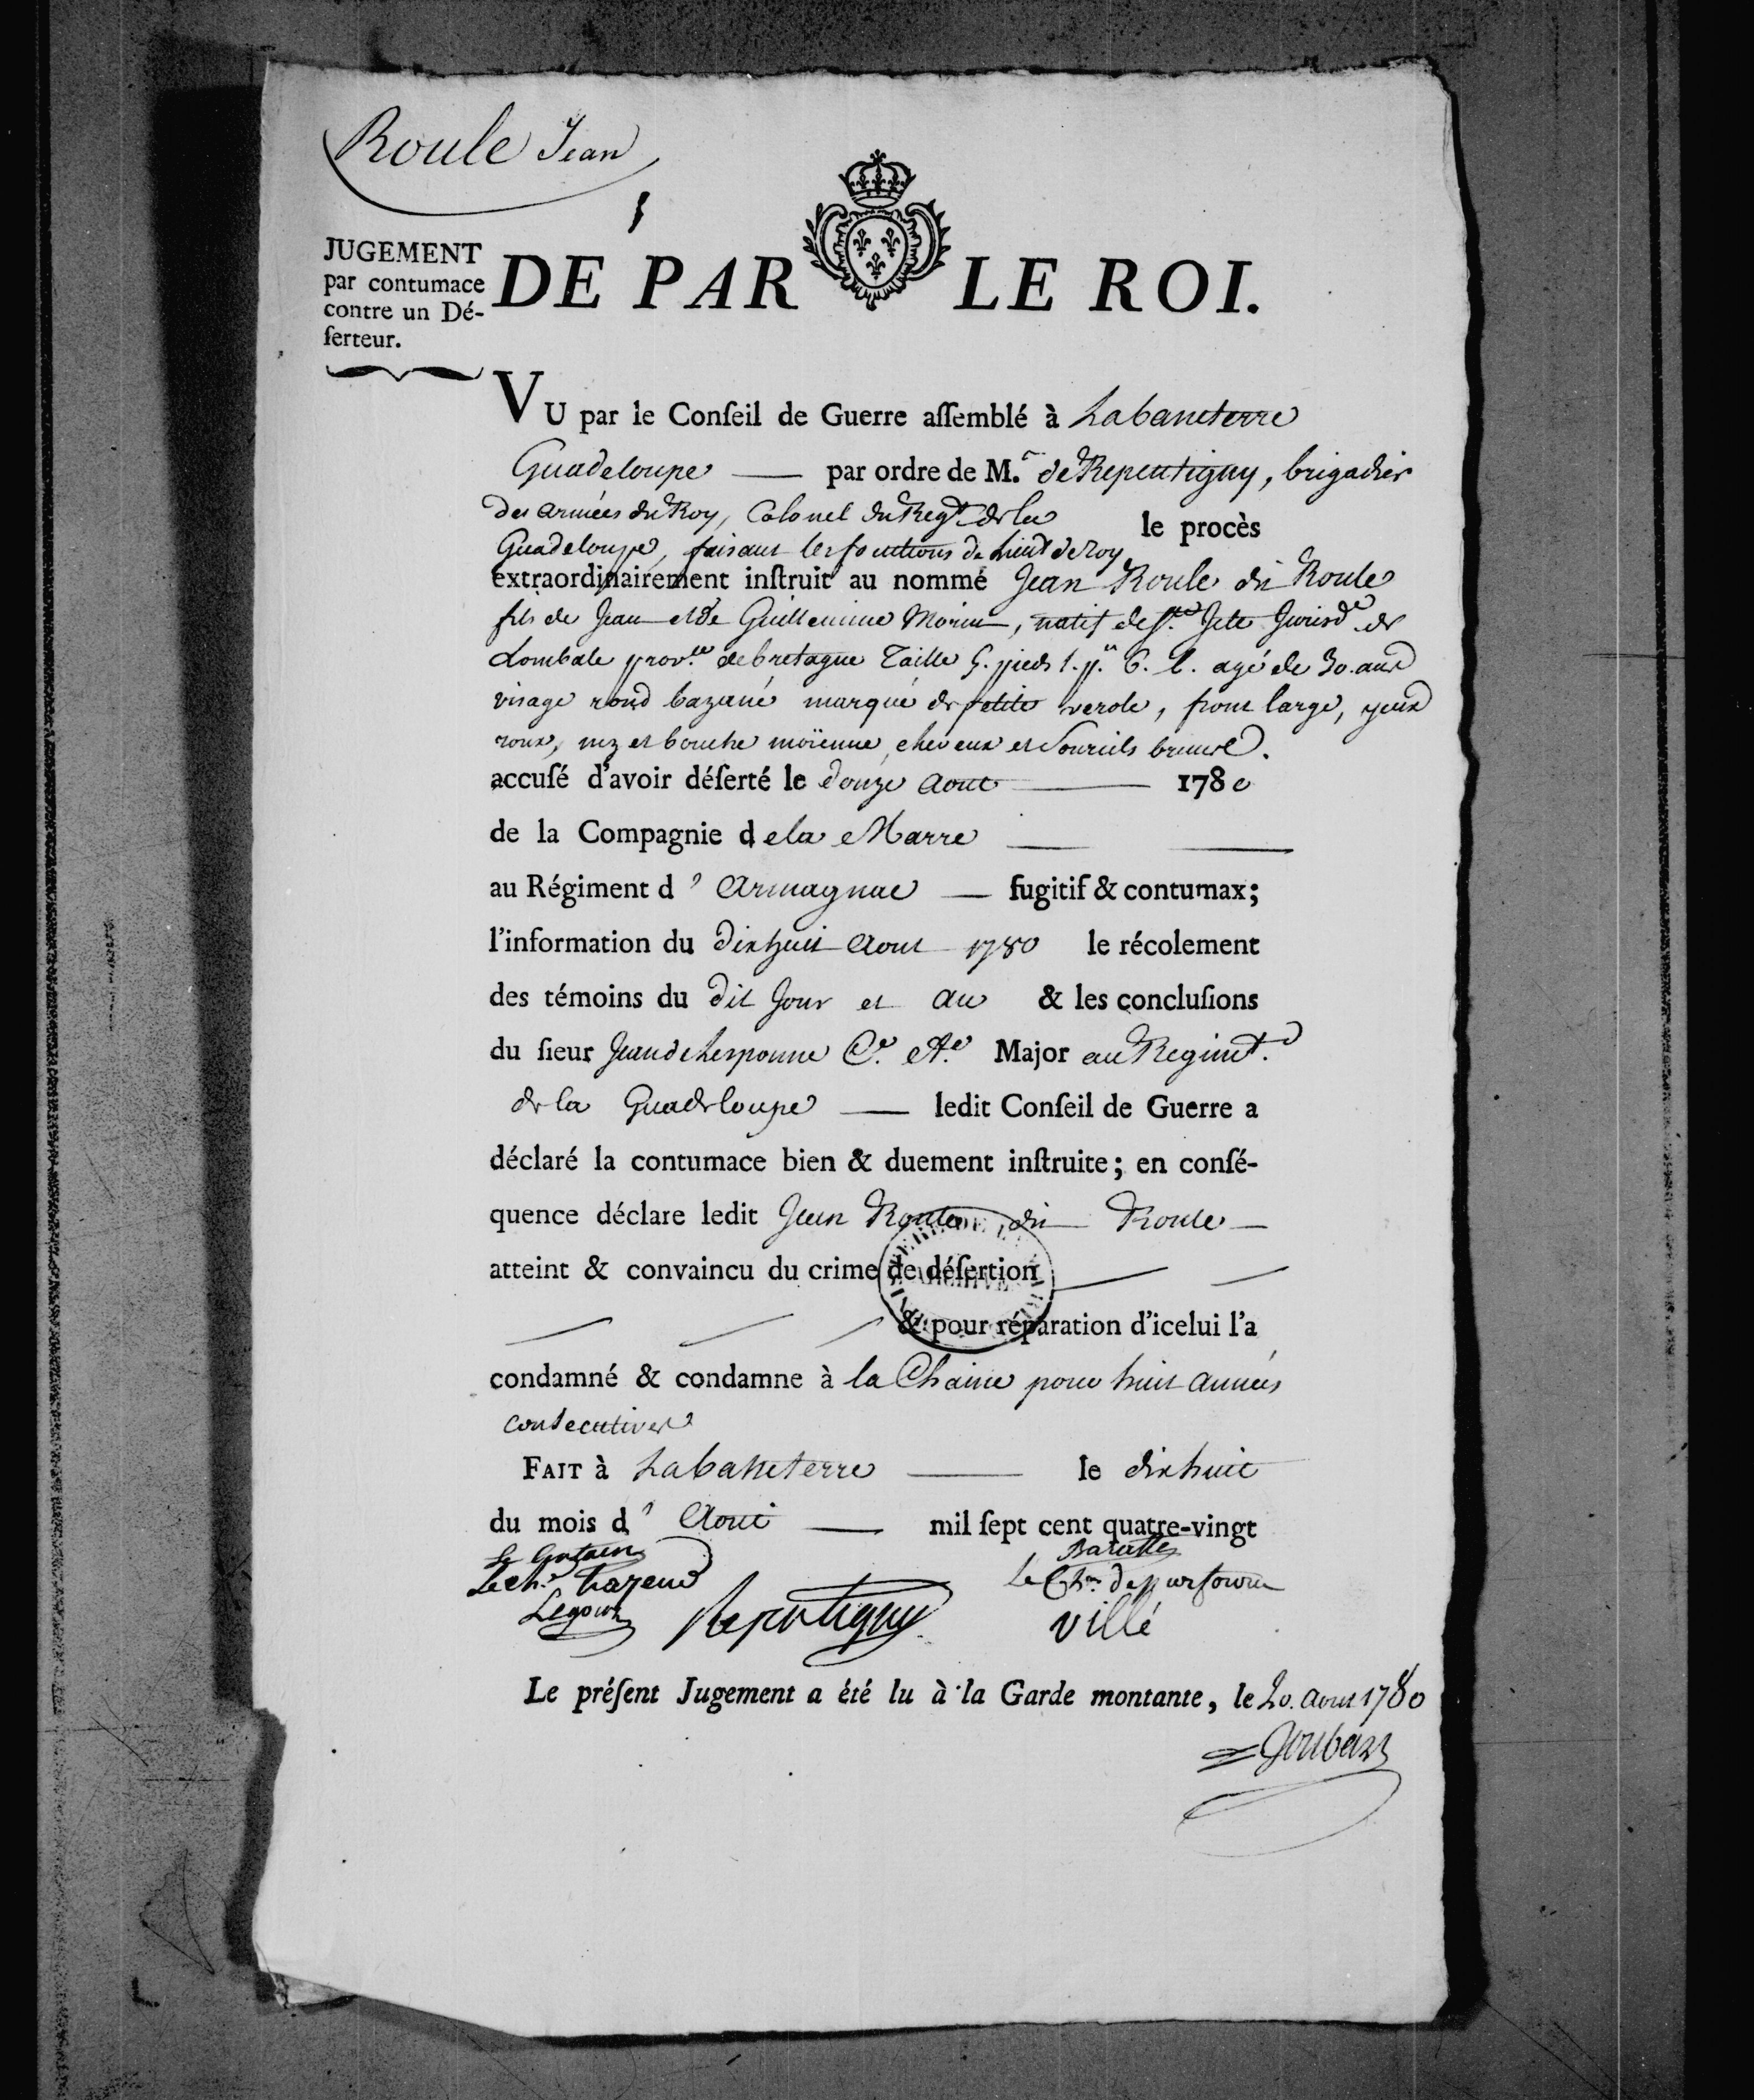 Roule Jean
JUGEMENT
par contumace
contre un Dé-
ſerteur.
DE PAR LE ROI.
VU par le Conſeil de Guerre aſſemblé à Labaſſeterre
Guadeloupe — par ordre de M.r de Repentigny, brigadier
des armées du Roy, Colonel du Regt. de la
Guadeloupe, faisant les fonctions de Lieut de roy
le procès
extraordinairement inſtruit au nommé Jean Roule dit Roule
fils de Jean et de Guillemine Morin, natif de Jurisd.e de
Lombale prov.ce de bretagne Taille 5. pieds 1. p. 6. l. agé de 30. ans
visage rond bazané marqué de petite verole, front large, yeux
roux, nez et bouche moïenne, cheveux et Sourcils bruns.
accuſé d'avoir déſerté le douze Aout — 1780
de la Compagnie de la Marre — —
au Régiment d'Armagnac — fugitif & contumax;
l'information du dixhuit Aout 1780 le récolement
des témoins du dit Jour et an & les concluſions
du ſieur Jean de C.e A.e Major au Regimt.
de la Guadeloupe — ledit Conſeil de Guerre a
déclaré la contumace bien & duement inſtruite; en conſé-
quence déclare ledit Jean Roule, dit Roule —
atteint & convaincu du crime de déſertion
& pour réparation d'icelui l'a
condamné & condamne à la Chaine pour huit années
consecutives
FAIT à Labaſſeterre — le dixhuit
du mois d'Aout — mil ſept cent quatre-vingt
Repentigny
villé
Le préſent Jugement a été lu à la Garde montante, le 20. Aout 1780